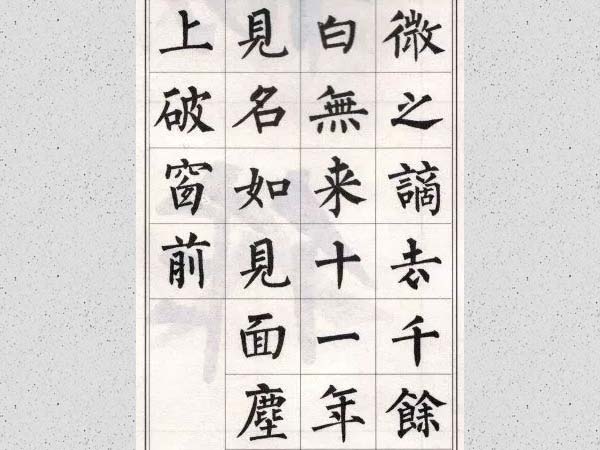 微之謫去千餘
白無来十一年
見名如見面塵
上破窗前